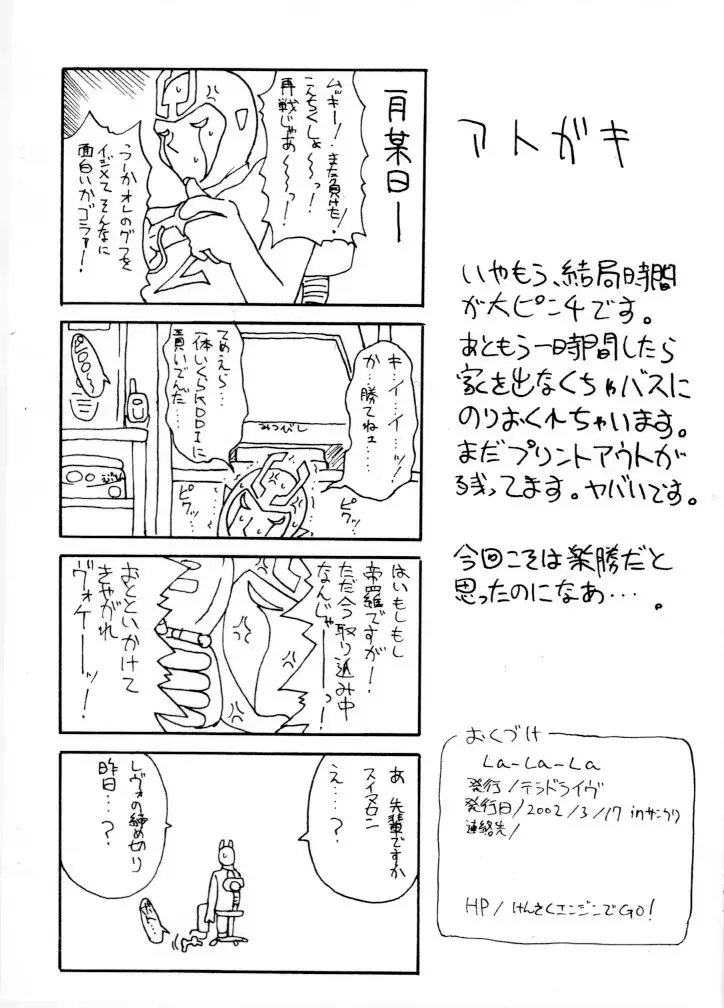 アトガキ
いやもう、結局時間
が大ピンチです。
あともう一時間したら
家を出なくちゃバスに
のりおくれちゃいます。
まだプリントアウトが
残ってます。ヤバいです。
今回こそは楽勝だと
思ったのになあ…。
月某日ー
ムッキー!また負けた!
こんちくしょ〜〜っ!
再戦じゃあ〜〜っ!
うーかオレのグフを
イジメてそんなに
面白いかゴラァー!
キ…イ…イ…ッ!
か…勝てねェ……
てめえら…
一体いくらKDDIに
貢いでんだ…
みつびし
ピクッ…
ピクッ…
はいもしもし
帝羅ですが!
ただ今取り込み中
なんじゃーーっ!
おとといかけて
きゃがれ
ヴォケーーッ!
あ 先輩ですか
スイマセン
え…?
レヴォの締め切り
昨日…?
おくづけ
La-La-La
発行/テラドライヴ
発行日/2002/3/17 inサンクリ
連絡先/
HP/けんさくエンジンでGO!